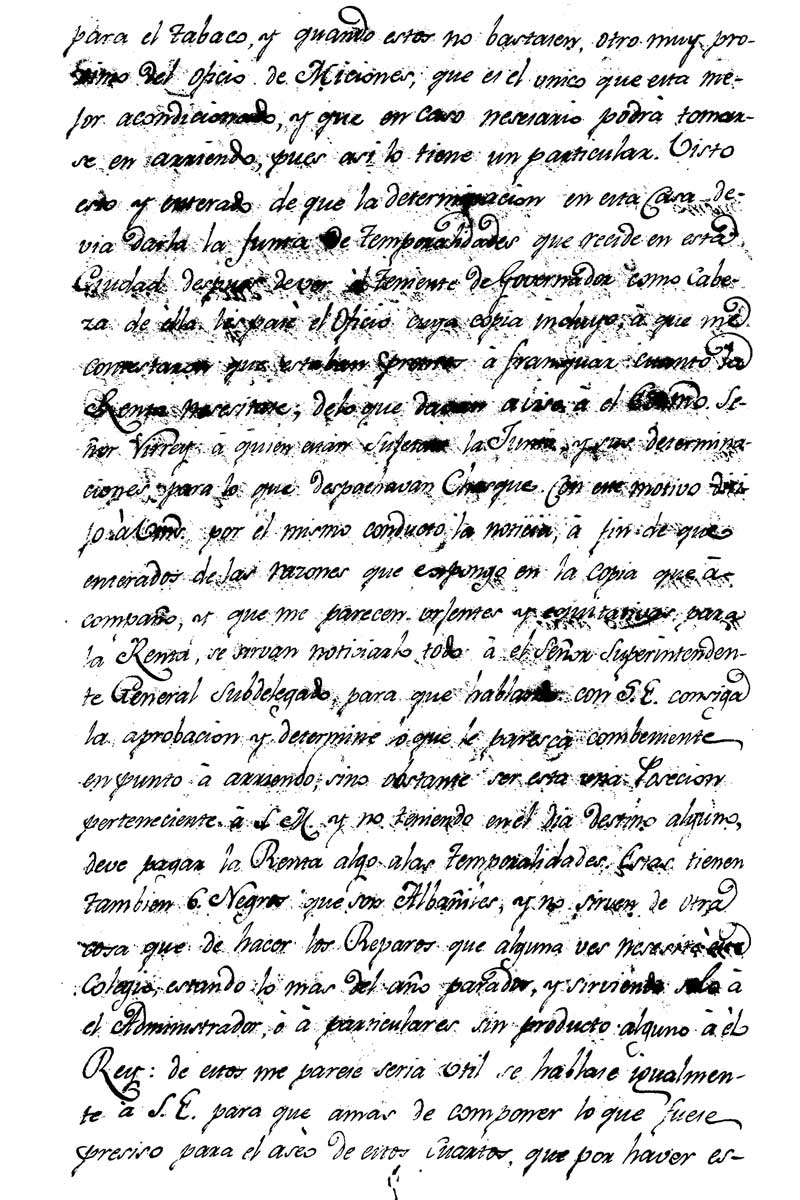 para el tabaco, y quando estos no bastasen, otro muy pro-
ximo del oficio de Miciones, que es el unico que esta me-
jor acondicionado, y que en caso nesesario podrà tomar-
se en arriendo, pues asi lo tiene un particular. Visto
esto y enterado de que la determinacion en esta Casa de-
via darla la Junta de temporalidades que recide en esta
Ciudad despues de ver àl teniente de Governador como Cabe-
za de èlla les pasè el Oficio cuya copia incluyo, à que me
contestaron que estaban prontos à franquear cuanto la
Renta nesesitase, de lo que davan aviso à el Exmo. Se-
ñor Virrey à quien estan sujetas la Junta, y sus determina-
ciones, para lo que despachavan Chasque. Con este motivo diri-
jo à Vms. por el mismo conducto la noticia, à fin de que
enterados de las razones que expongo en la copia que à-
compaño, y que me parecen urjentes y equitativas para
la Renta, se sirvan noticiarlo todo à el Señor Superintenden-
te General Subdelegado, para que hablando con S. E. consiga
la aprobacion y determine lo que le paresca combeniente
en punto à arriendo, sino obstante ser esta una Posecion
perteneciente à S. M. y no teniendo en el dia destino alguno,
deve pagar la Renta algo alas temporalidades. Estas tienen
tambien 6. Negros que son Albañiles, y no sirven de otra
cosa que de hacer los Reparos que alguna ves nesesita este
Colegio, estando lo mas del año parados, y sirviendo solo à
el Administrador, ò à particulares sin producto alguno à èl
Rey: de estos me parese seria util se hablase igualmen-
te à S. E. para que amas de componer lo que fuese
presiso para el aseo de estos cuartos, que por haver es-